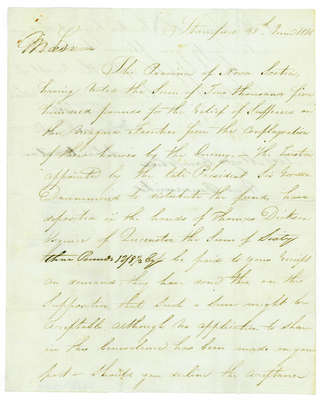 Stamford 25th June 1816
Madam
The Province of Nova Scotia
having voted the Sum of Two thousand five
hundred pounds for the relief of Sufferers on
the Niagara Frontier from the Conflagration
of their houses by the Enemy - The Trustees
appointed by the late President Sir Gordon
Drummond to distribute the fund, have
deposited in the hands of Thomas Dickson
Esquire of Queenston the Sum of Sixty
three Pounds 12/8½ to be paid to your receipt
on demand they have done this on the
Supposition that such a Sum might be
acceptable although no application to share
in this benevolence has been made on your
part - Should you decline the acceptance